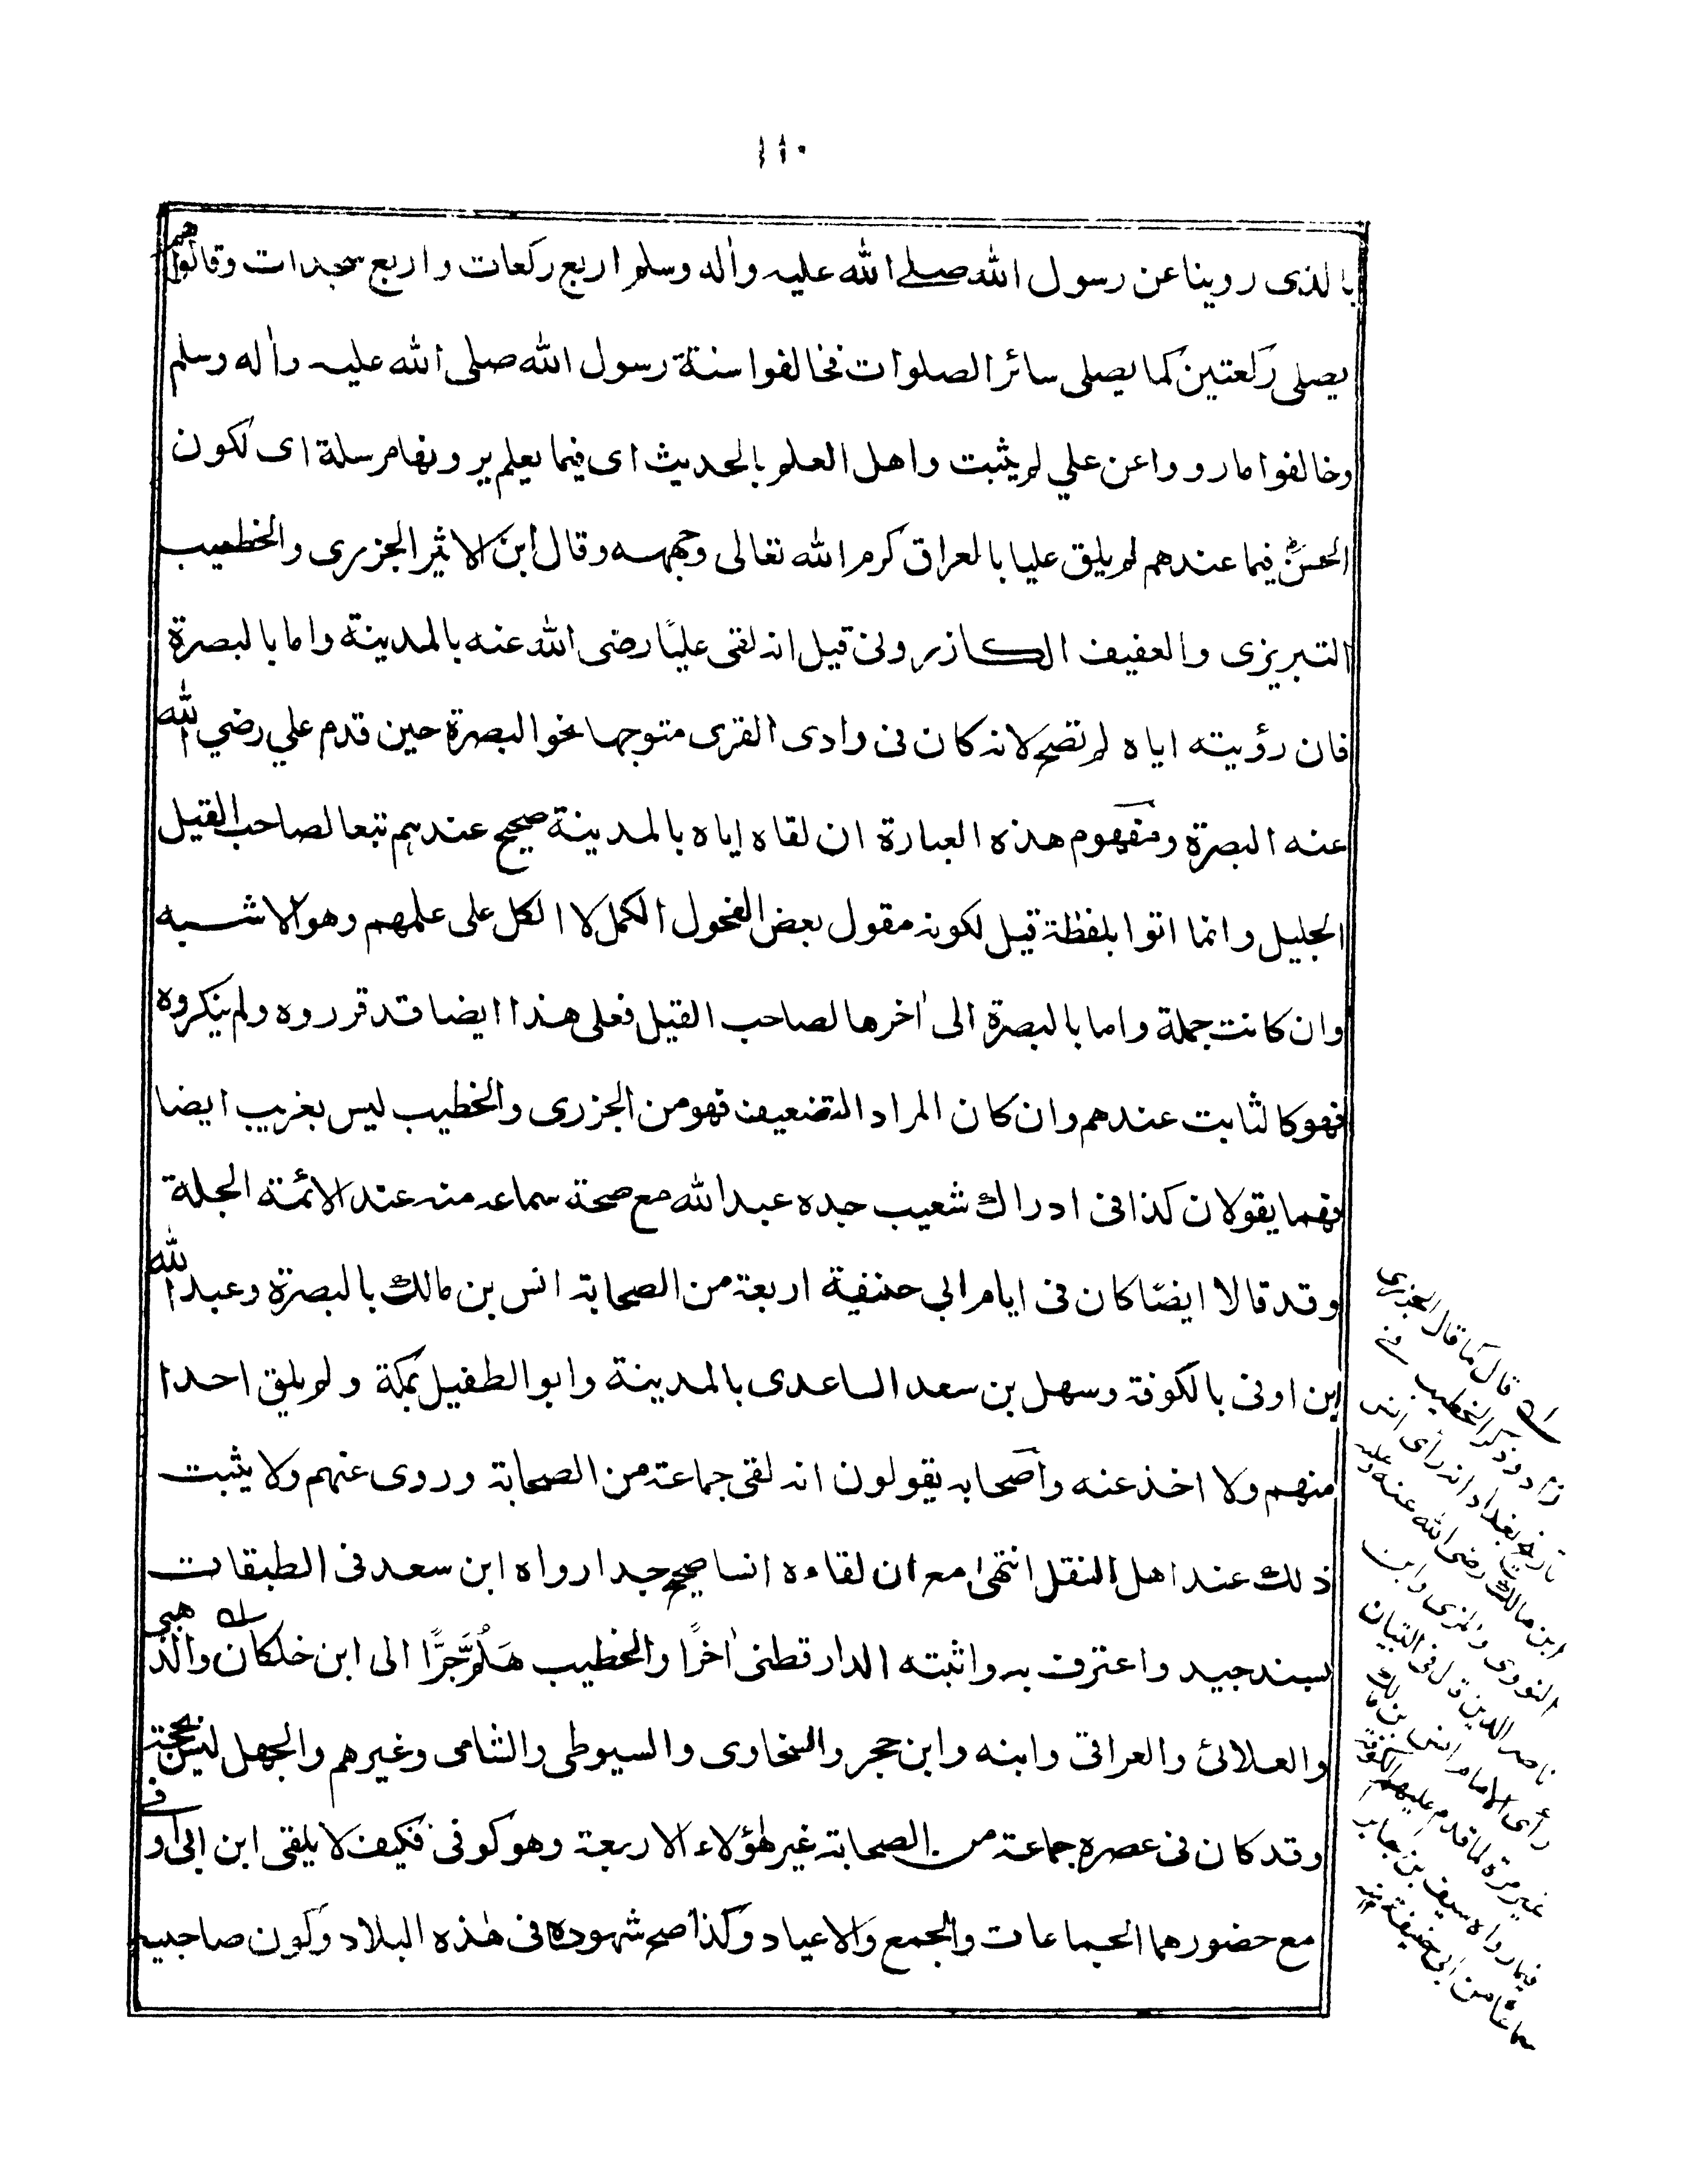 ١١٠
بالذى روينا عن رسول الله صلے الله عليه واٰله وسلم اربع ركعات واربع سجدات وقالواهم
يصلى ركعتين كما يصلى سائر الصلوات فخالفوا سنة رسول الله صلى الله عليه واٰله وسلم
وخالفوا ما رووا عن علي لم يثبت واهل العلم بالحديث اى فيما يعلم يرونها مرسلة اى لكون
الحسن فيما عندهم لم يلق عليا بالعراق كرم الله تعالى وجهه وقال ابن الاثير الجزرى والخطيب
التبريزى والعفيف الكازرونى قيل انه لقى عليًا رضى الله عنه بالمدينة واما بالبصرة
فان رؤيته اياه لم تصح لانه كان فى وادى القرى متوجها نحو البصرة حين قدم علي رضي الله
عنه البصرة ومفهوم هذه العبارة ان لقاه اياه بالمدينة صحيح عندهم تبعا لصاحب القيل
الجليل وانما اتوا بلفظة قيل لكونه مقول بعض الفحول الكمل لا الكل على علمهم وهو الاشبه
وان كانت جملة واما بالبصرة الى اٰخرها لصاحب القيل فعلى هذا ايضا قد قرروه ولم ينكروه
فهو كالثابت عندهم وان كان المراد التضعيف فهو من الجزرى والخطيب ليس بغريب ايضا
فهما يقولان كذا فى ادراك شعيب جده عبد الله مع صحة سماعه منه عند الائمة الجلة
وقد قالا ايضًا كان فى ايام ابي حنيفة اربعة من الصحابة انس بن مالك بالبصرة وعبد الله
ابن اوفى بالكوفة وسهل بن سعد الساعدى بالمدينة وابو الطفيل بمكة ولم يلق احدا
منهم ولا اخذ عنه واصحابه يقولون انه لقى جماعة من الصحابة وروى عنهم ولا يثبت
ذلك عند اهل النقل انتهىٰ مع ان لقاءه انسا صحيح جدا رواه ابن سعد فى الطبقات
بسند جيد واعترف به واثبته الدارقطنى اٰخرًا والخطيب هَلُمَّ جَرًّا الى ابن خلكان والذهبى
والعلائى والعراقى وابنه وابن حجر والسخاوى والسيوطى والشامى وغيرهم والجهل ليس بحجة
وقد كان فى عصره جماعة من الصحابة غير هٰؤلاء الاربعة وهو كوفى فكيف لا يلقى ابن ابى اوفے
مع حضورهما الجماعات والجمع والاعياد وكذا صح شهوده فى هٰذه البلاد وكون صاحبيه
قال كما قال الجزرى
زاد وذكر الخطيب فے
تاريخ بغداد انه رأى انس
ابن مالك رضى الله عنه وعليه
النووى والمزى وابن
ناصر الدين قال فى التبيان
رأى الامام انس بن مالك
غير مرة لما قدم عليهم الكوفة
فيما رواه سيف بن جابر
سماعًا من ابى حنيفة